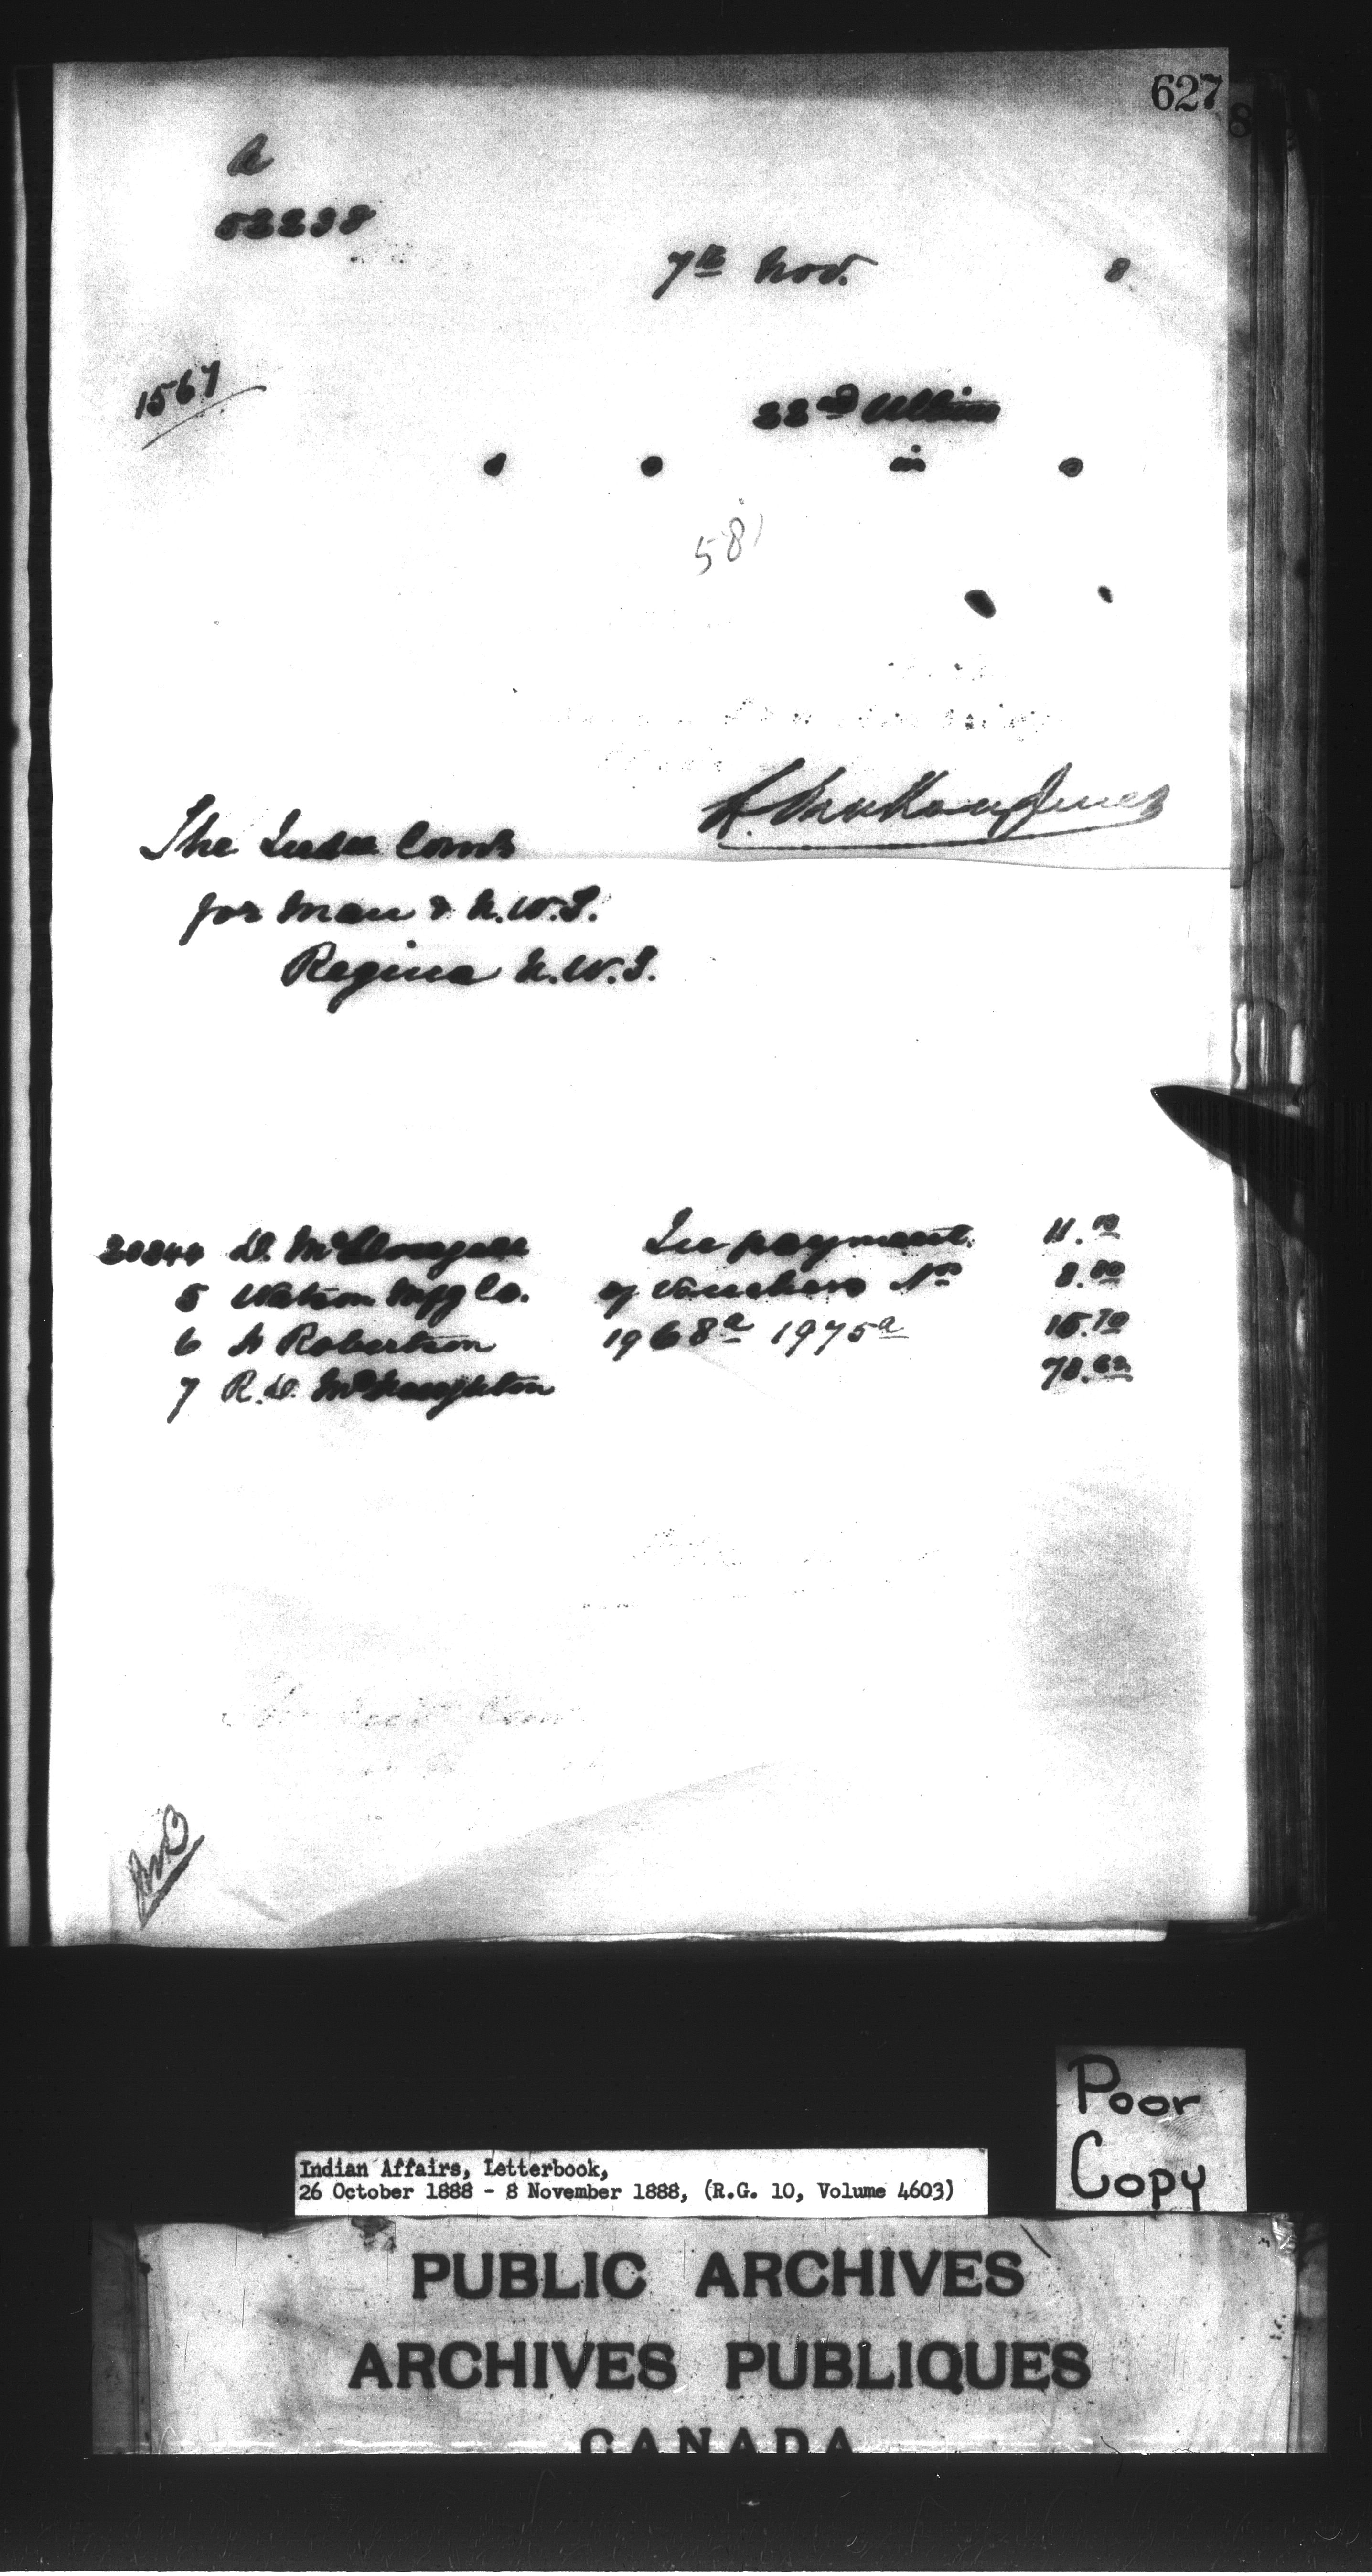 627
8
A
52238
7th Nov. 8
1567
22nd Ultimo
in
581
L. VanKoughnet
The Indn Comr
for Man & N.W.T.
Regina N.W.T.
20244 D. McDougall In payment 11.00
5 Watson Mfg Co. of Vouchers Nos 8.00
6 A Robertson 1968a 1975a 15.70
7 R.D. McNaughton 78.62
Poor
Copy
Indian Affairs, Letterbook,
26 October 1888 - 8 November 1888, (R.G. 10, Volume 4603)
PUBLIC ARCHIVES
ARCHIVES PUBLIQUES
CANADA